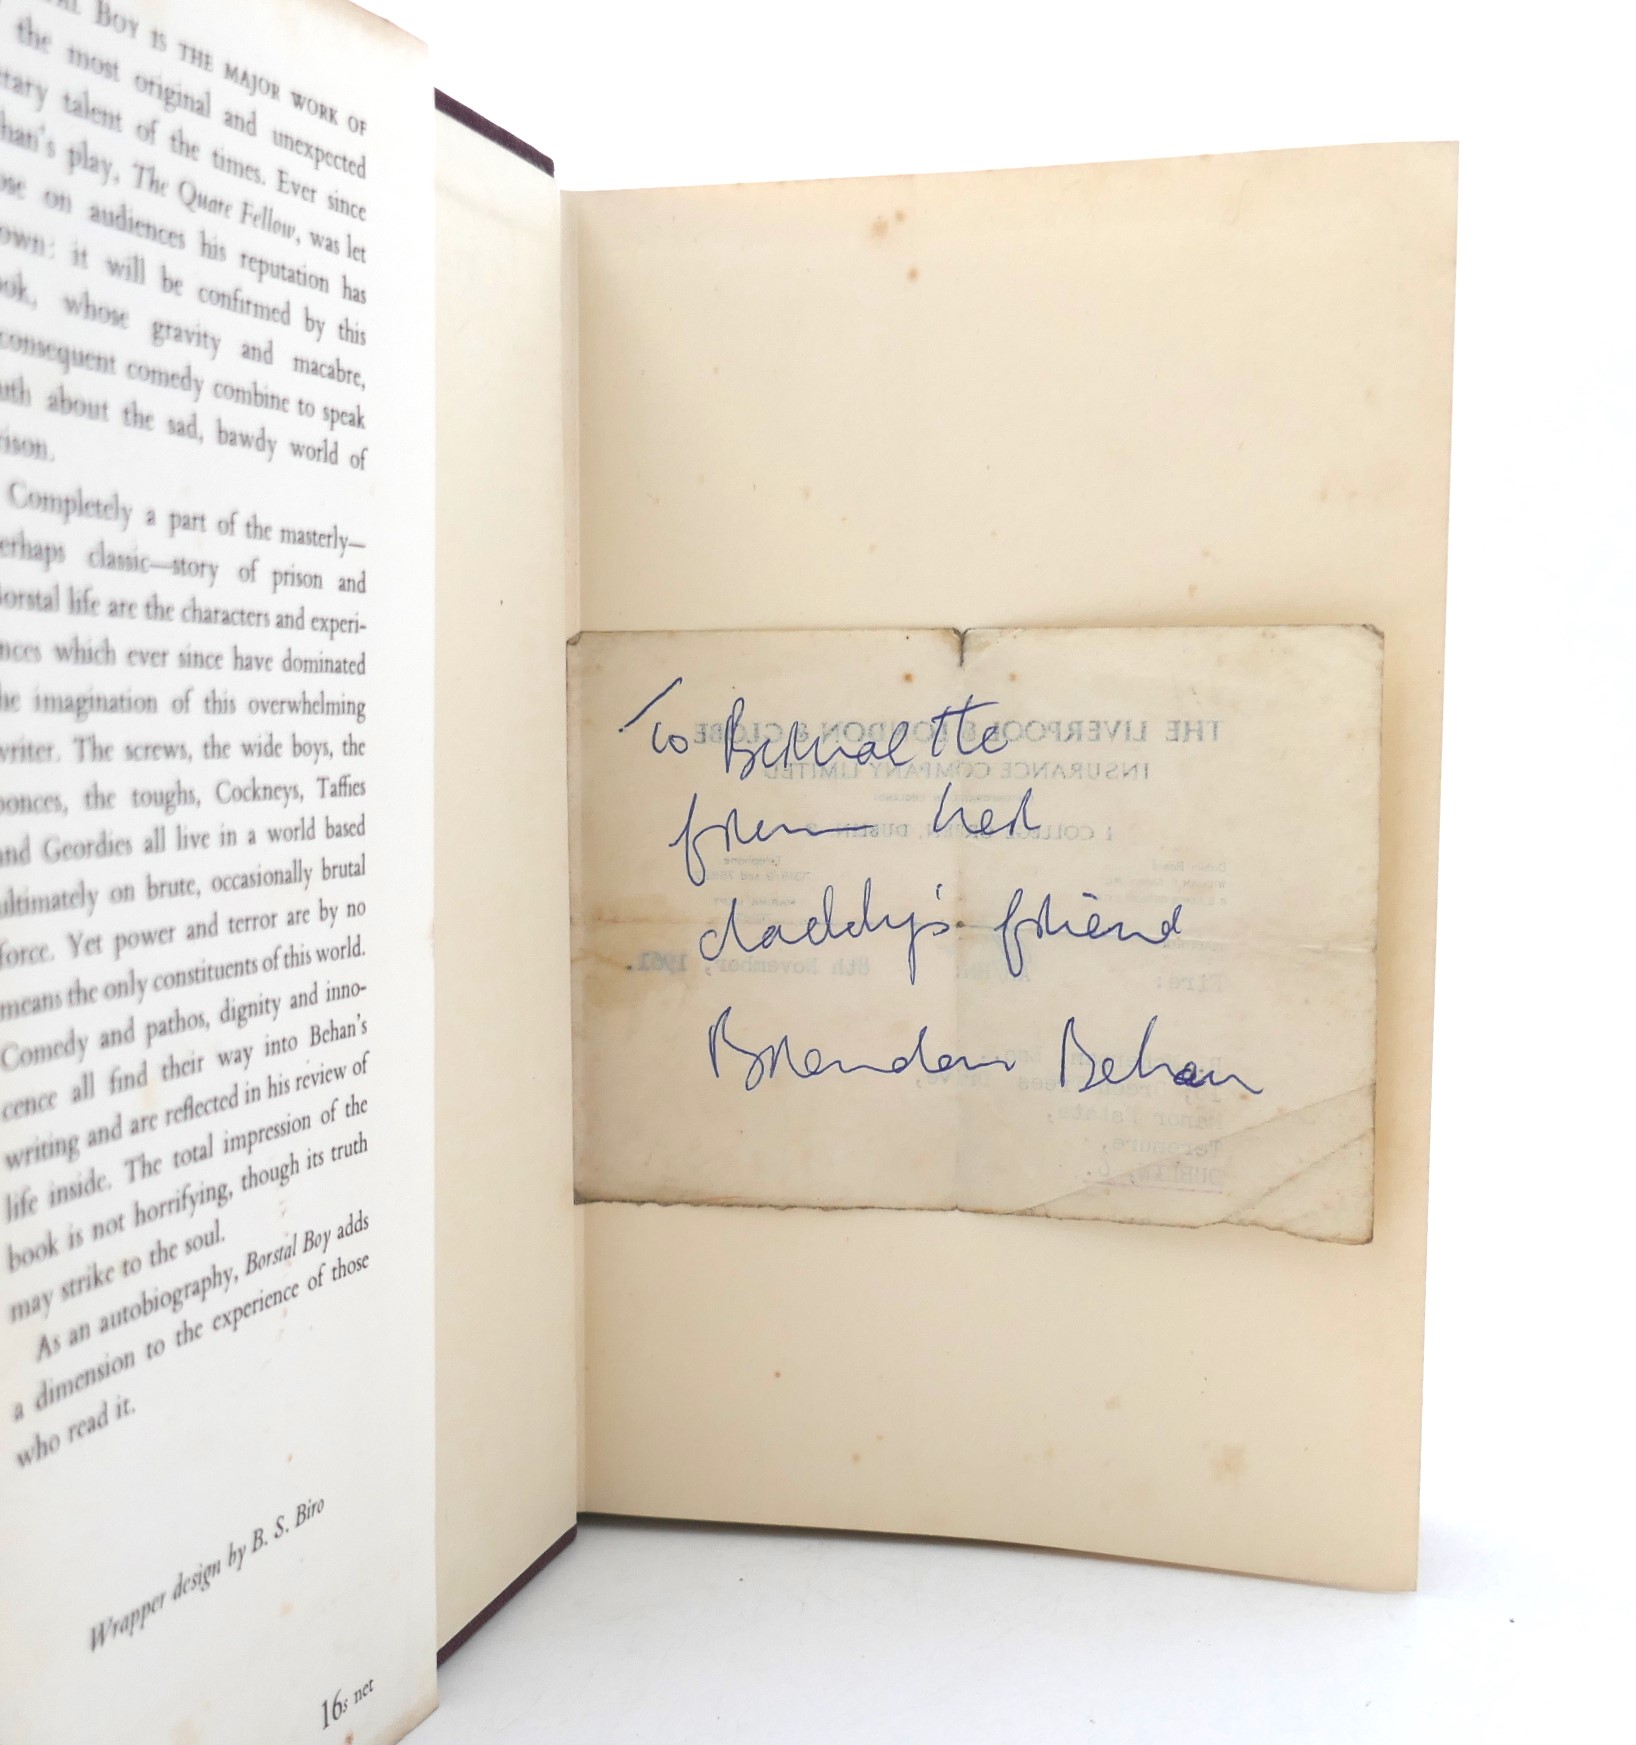 BOY IS THE MAJOR WORK OF
the most original and unexpected
talent of the times. Ever since
play, The Quare Fellow, was let
on audiences his reputation has
it will be confirmed by this
whose gravity and macabre,
consequent comedy combine to speak
about the sad, bawdy world of
Completely a part of the masterly—
classic—story of prison and
life are the characters and experi-
which ever since have dominated
imagination of this overwhelming
The screws, the wide boys, the
the toughs, Cockneys, Taffies
Geordies all live in a world based
ultimately on brute, occasionally brutal
force. Yet power and terror are by no
means the only constituents of this world.
Comedy and pathos, dignity and inno-
cence all find their way into Behan's
writing and are reflected in his review of
life inside. The total impression of the
book is not horrifying, though its truth
may strike to the soul.
As an autobiography, Borstal Boy adds
a dimension to the experience of those
who read it.
Wrapper design by B. S. Biro
16s net
To Bernadette
from her
daddy's friend
Brendan Behan
THE LIVERPOOL & LONDON & GLOBE
INSURANCE COMPANY LIMITED
1 COLLEGE GREEN, DUBLIN
Telephone
Fire:
8th November, 1961.
Manor Estate,
Terenure,
DUBLIN, 6.